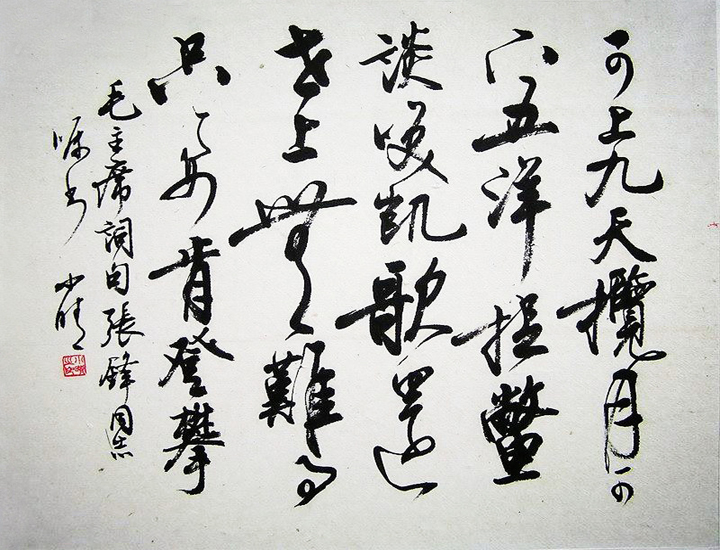 可上九天攬月可
下五洋捉鱉
談咲凱歌還
世上無難事
只要肯登攀
毛主席詞句張鋒同志
嘱书 小晴